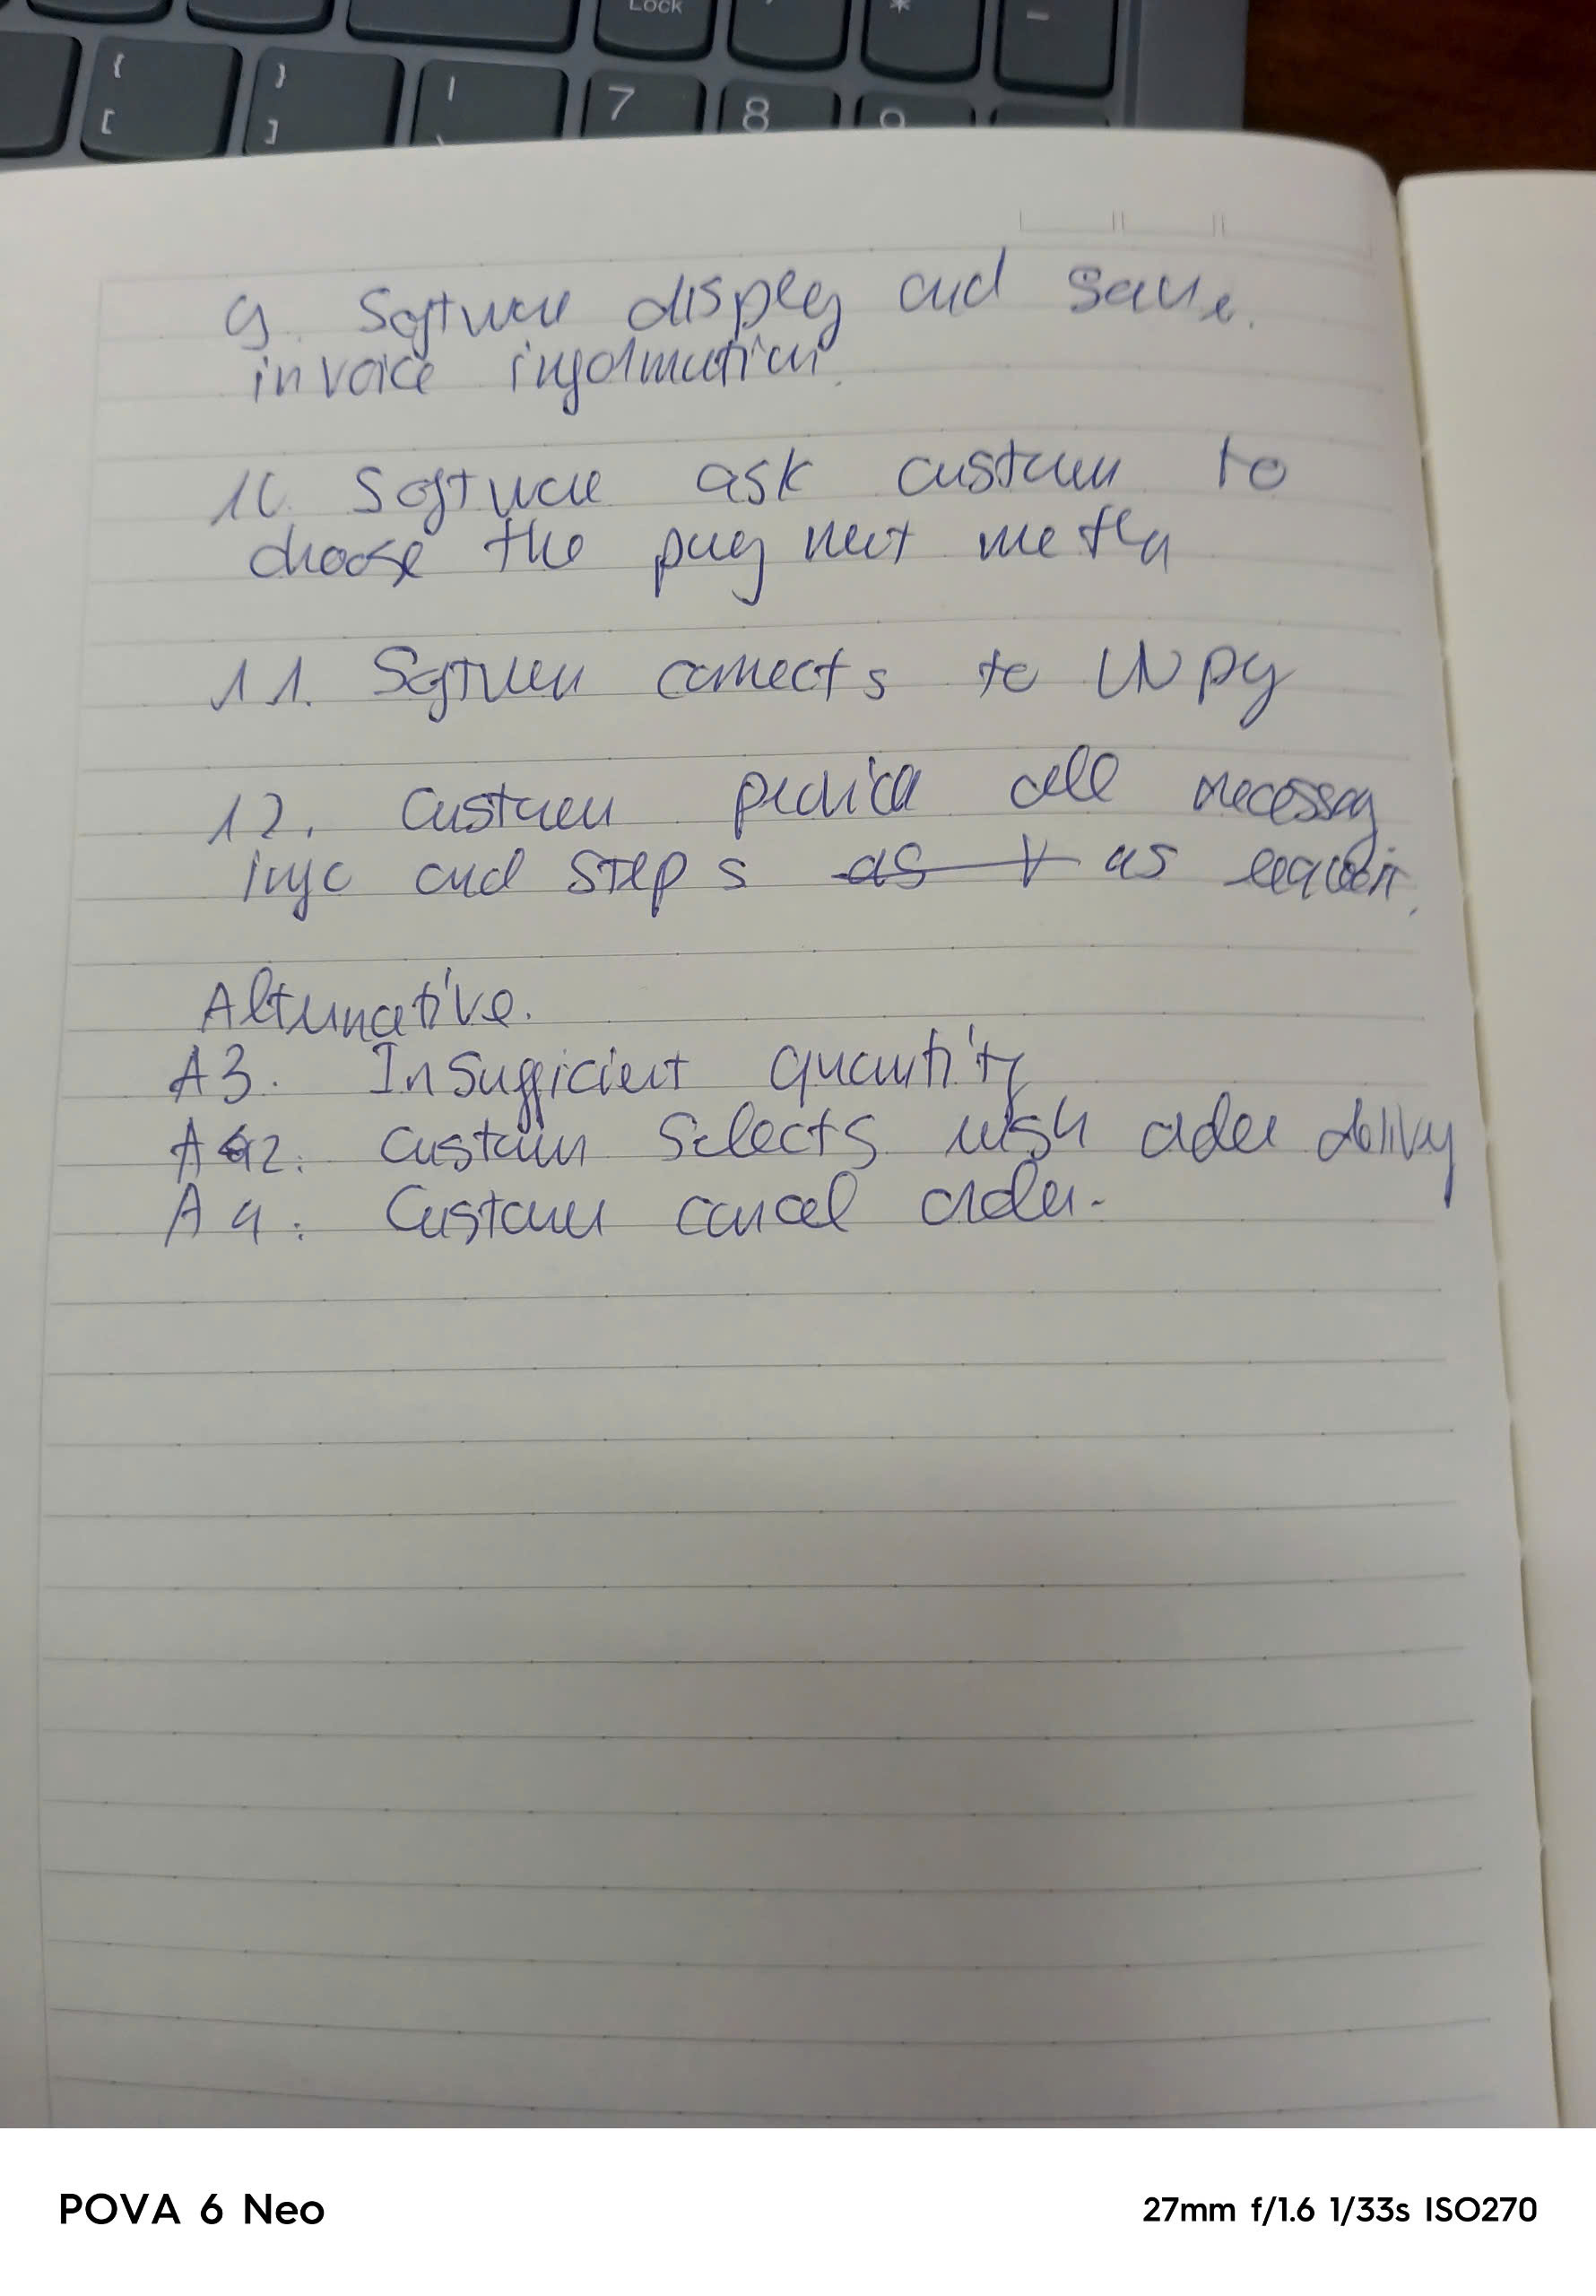 Lock
*
-
{
[
}
]
|
\
7
8
9
9. Software display and save
invoice information.
10. Software ask customer to
choose the payment metho
11. Software connects to VNPay
12. Customer provide all necessary
info and steps as require.
Alternative.
A3. Insufficient quantity
A2: Customer selects rush order delivery
A4: Customer cancel order.
POVA 6 Neo
27mm f/1.6 1/33s ISO270